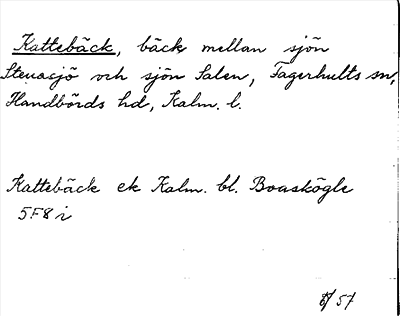 Kattebäck, bäck mellan sjön
Stensjö och sjön Salen, Fagerhults sn,
Handbörds hd, Kalm. l.
Kattebäck ek Kalm. bl. Boaskögle
5F8i
57